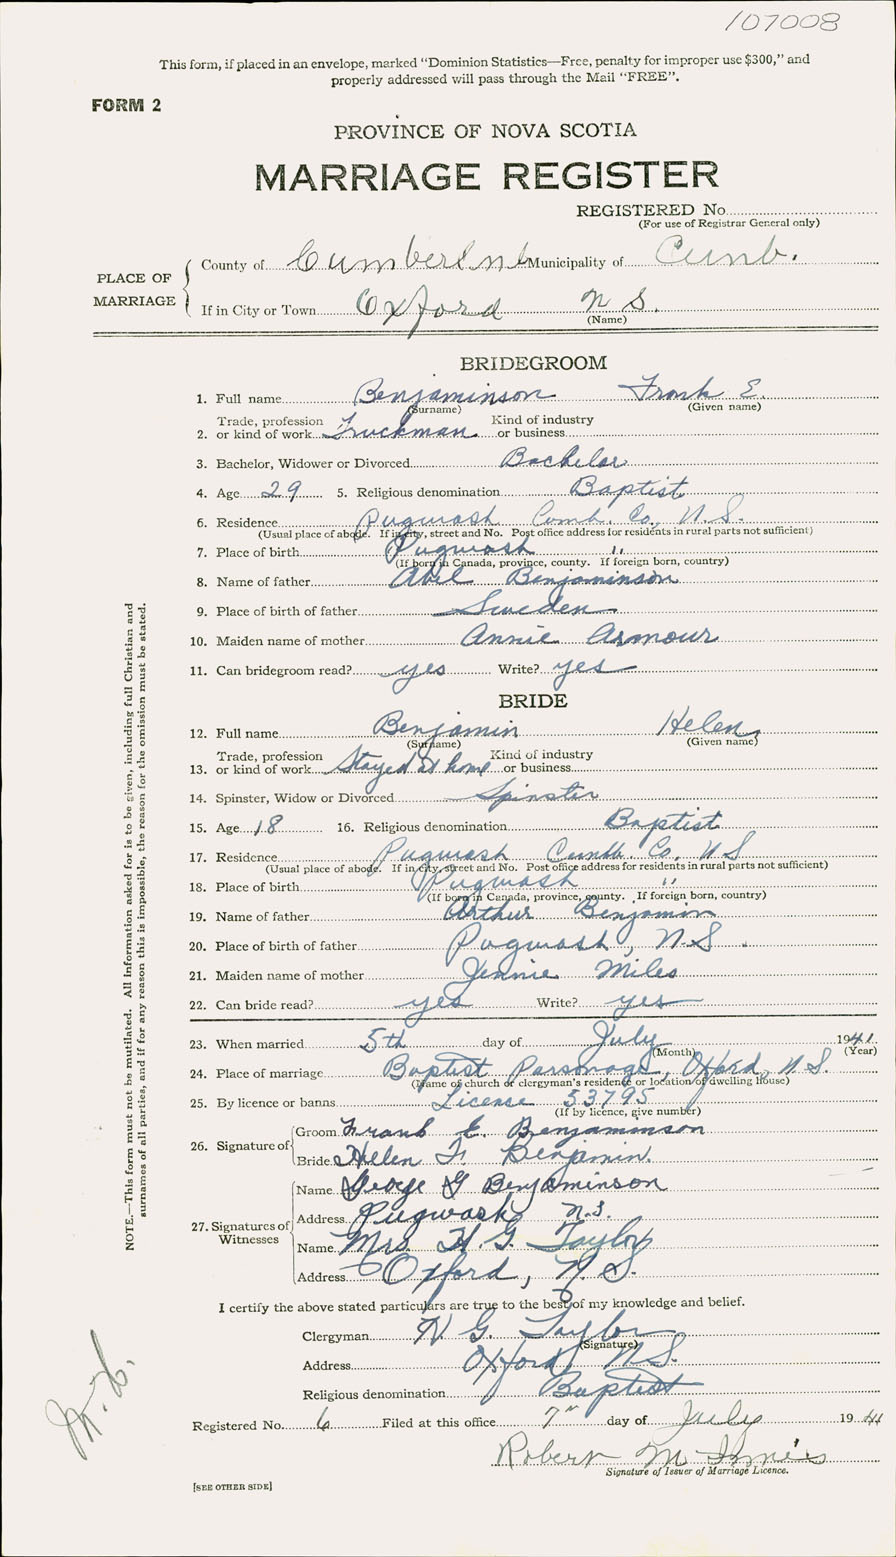 107008
This form, if placed in an envelope, marked “Dominion Statistics—Free, penalty for improper use $300,” and
properly addressed will pass through the Mail “FREE”.
FORM 2
PROVINCE OF NOVA SCOTIA
MARRIAGE REGISTER
REGISTERED No.
(For use of Registrar General only)
PLACE OF MARRIAGE
County of Cumberland Municipality of Cumb.
If in City or Town Oxford N S.
(Name)
BRIDEGROOM
1. Full name Benjaminson Frank E.
(Surname) (Given name)
Trade, profession Kind of industry
2. or kind of work Truckman or business
3. Bachelor, Widower or Divorced Bachelor
4. Age 29 5. Religious denomination Baptist
6. Residence Pugwash Cumb. Co, N.S.
(Usual place of abode. If in city, street and No. Post office address for residents in rural parts not sufficient)
7. Place of birth Pugwash "
(If born in Canada, province, county. If foreign born, country)
8. Name of father Abel Benjaminson
9. Place of birth of father Sweden
10. Maiden name of mother Annie Armour
11. Can bridegroom read? yes Write? yes
BRIDE
12. Full name Benjamin Helen
(Surname) (Given name)
Trade, profession Kind of industry
13. or kind of work Stayed at home or business
14. Spinster, Widow or Divorced Spinster
15. Age 18 16. Religious denomination Baptist
17. Residence Pugwash Cumb. Co, N S
(Usual place of abode. If in city, street and No. Post office address for residents in rural parts not sufficient)
18. Place of birth Pugwash "
(If born in Canada, province, county. If foreign born, country)
19. Name of father Arthur Benjamin
20. Place of birth of father Pugwash, N.S.
21. Maiden name of mother Jennie Miles
22. Can bride read? yes Write? yes
23. When married 5th day of July 1941
(Month) (Year)
24. Place of marriage Baptist Parsonage, Oxford, N.S.
(Name of church or clergyman's residence or location of dwelling house)
25. By licence or banns License 53795
(If by licence, give number)
26. Signature of
Groom Frank E. Benjaminson
Bride Helen F. Benjamin.
27. Signatures of Witnesses
Name George G Benjaminson
Address Pugwash N.S.
Name Mrs H. G. Taylor
Address Oxford, N.S.
I certify the above stated particulars are true to the best of my knowledge and belief.
Clergyman H G. Taylor
(Signature)
Address Oxford N.S.
Religious denomination Baptist
Registered No. 6 Filed at this office 7" day of July 1941
Robert M
Signature of Issuer of Marriage Licence.
[SEE OTHER SIDE]
NOTE.—This form must not be mutilated. All Information asked for is to be given, including full Christian and
surnames of all parties, and if for any reason this is impossible, the reason for the omission must be stated.